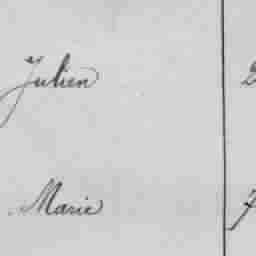 Julien
Marie